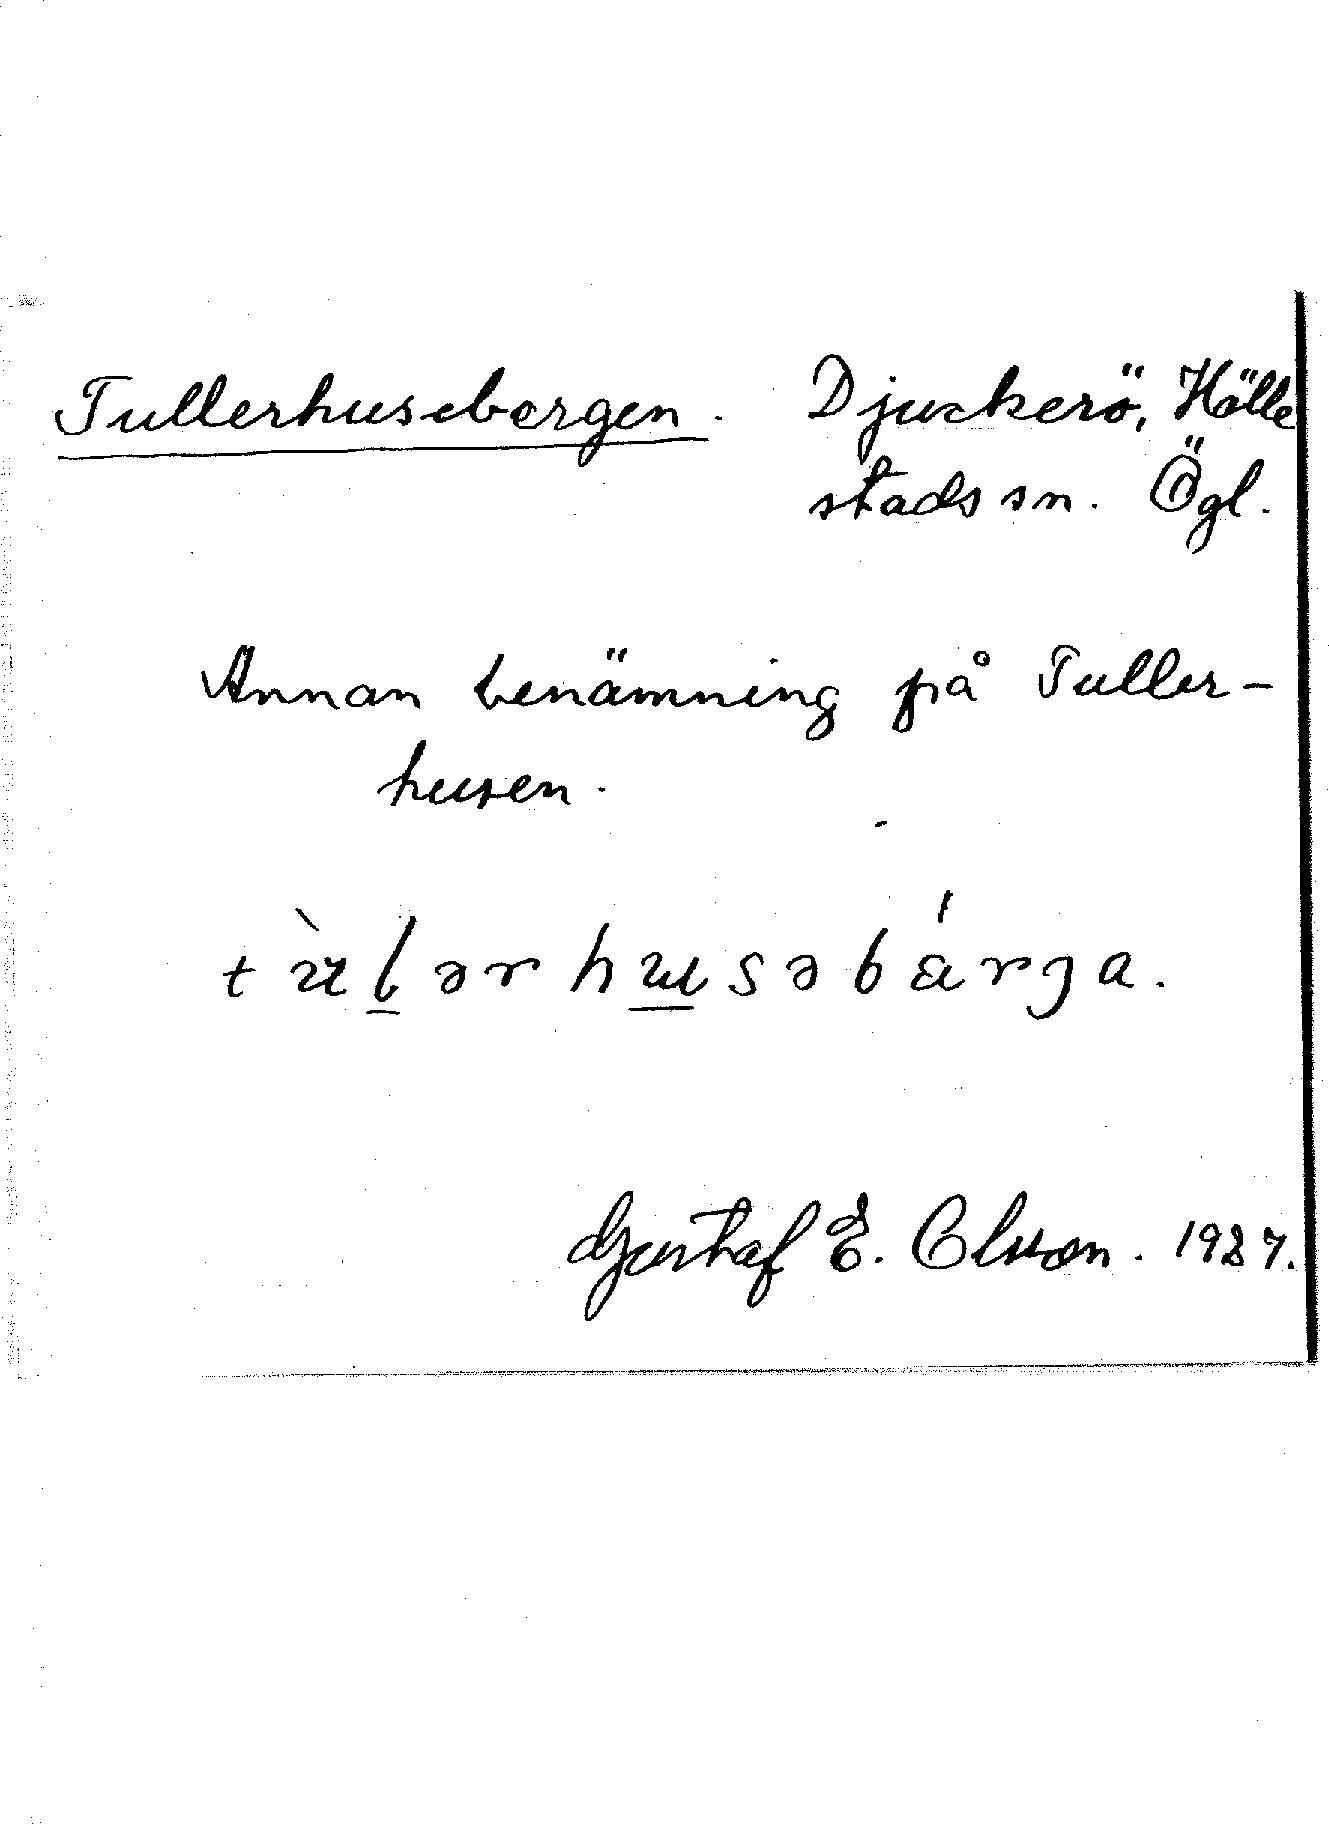 Tullerhusebergen. Djuckerö, Hälle
stads sn. Ögl.
Annan benämning på Tuller-
husen.
tùlərhusəbárga.
Gustaf E. Olsson. 1927.